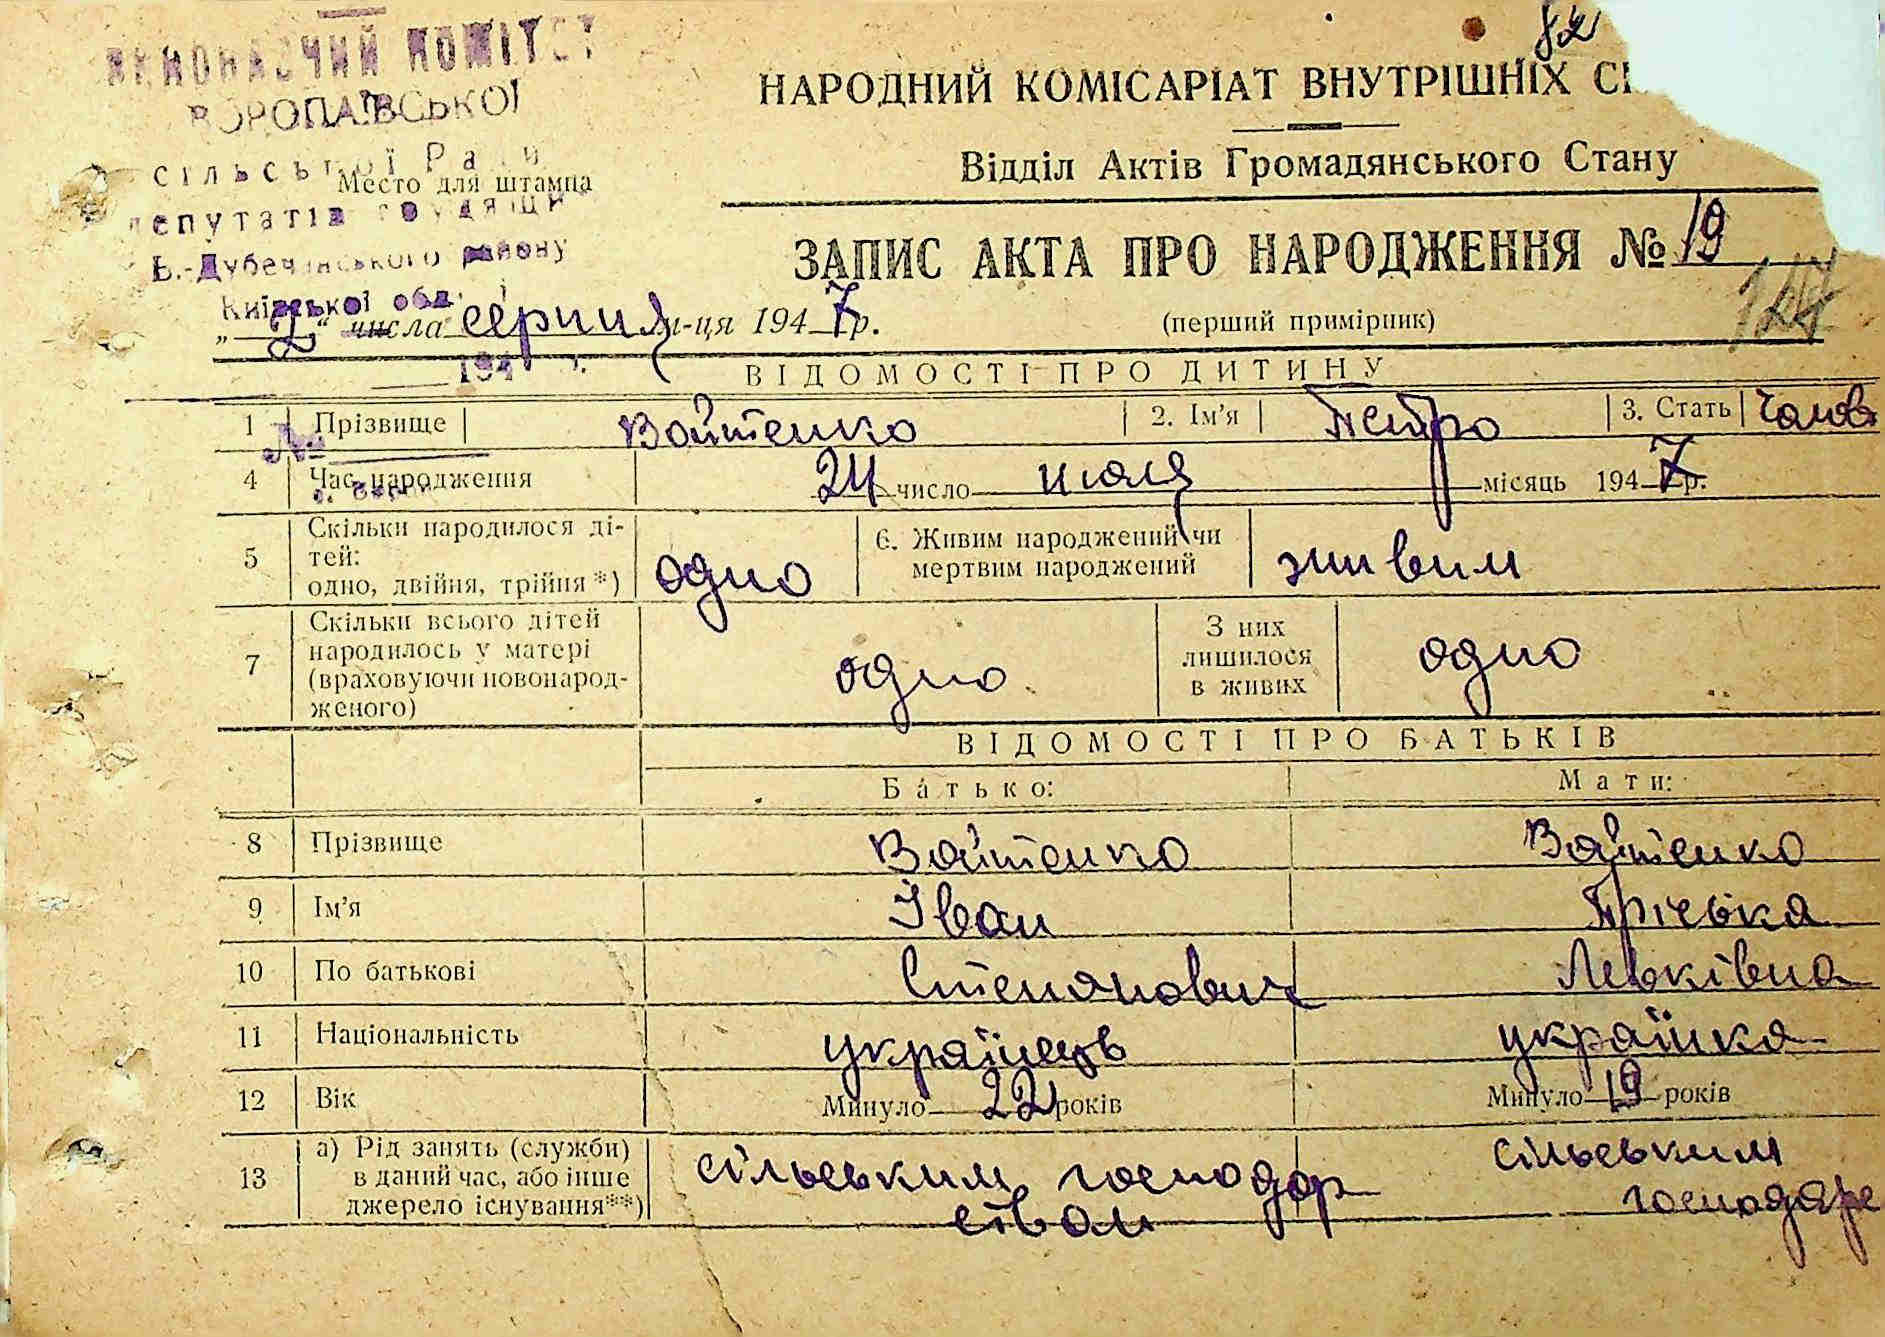 82
ВИКОНАВЧИЙ КОМІТЕТ
ВОРОПАЇВСЬКОЇ
сільської Ради
Место для штампа
депутатів трудящих
В.-Дубечанського району
Київської обл.
НАРОДНИЙ КОМІСАРІАТ ВНУТРІШНІХ СП
Відділ Актів Громадянського Стану
ЗАПИС АКТА ПРО НАРОДЖЕННЯ № 19
„2“ числа серпня м-ця 1947 р.
(перший примірник)
194 р.
ВІДОМОСТІ ПРО ДИТИНУ
1 Прізвище Войтенко 2. Ім'я Петро 3. Стать чолов
№
4 Час народження 24 число июля місяць 1947 р.
5 Скільки народилося ді-
тей:
одно, двійня, трійня*) одно 6. Живим народжений чи
мертвим народжений живим
7 Скільки всього дітей
народилось у матері
(враховуючи новонарод-
женого) одно З них
лишилося
в живих одно
ВІДОМОСТІ ПРО БАТЬКІВ
Батько: Мати:
8 Прізвище Войтенко Войтенко
9 Ім'я Іван Пріська
10 По батькові Степанович Левківна
11 Національність українець українка
12 Вік Минуло 22 років Минуло 19 років
13 а) Рід занять (служби)
в даний час, або інше
джерело існування**) сільським господар
ством сільським
господаре